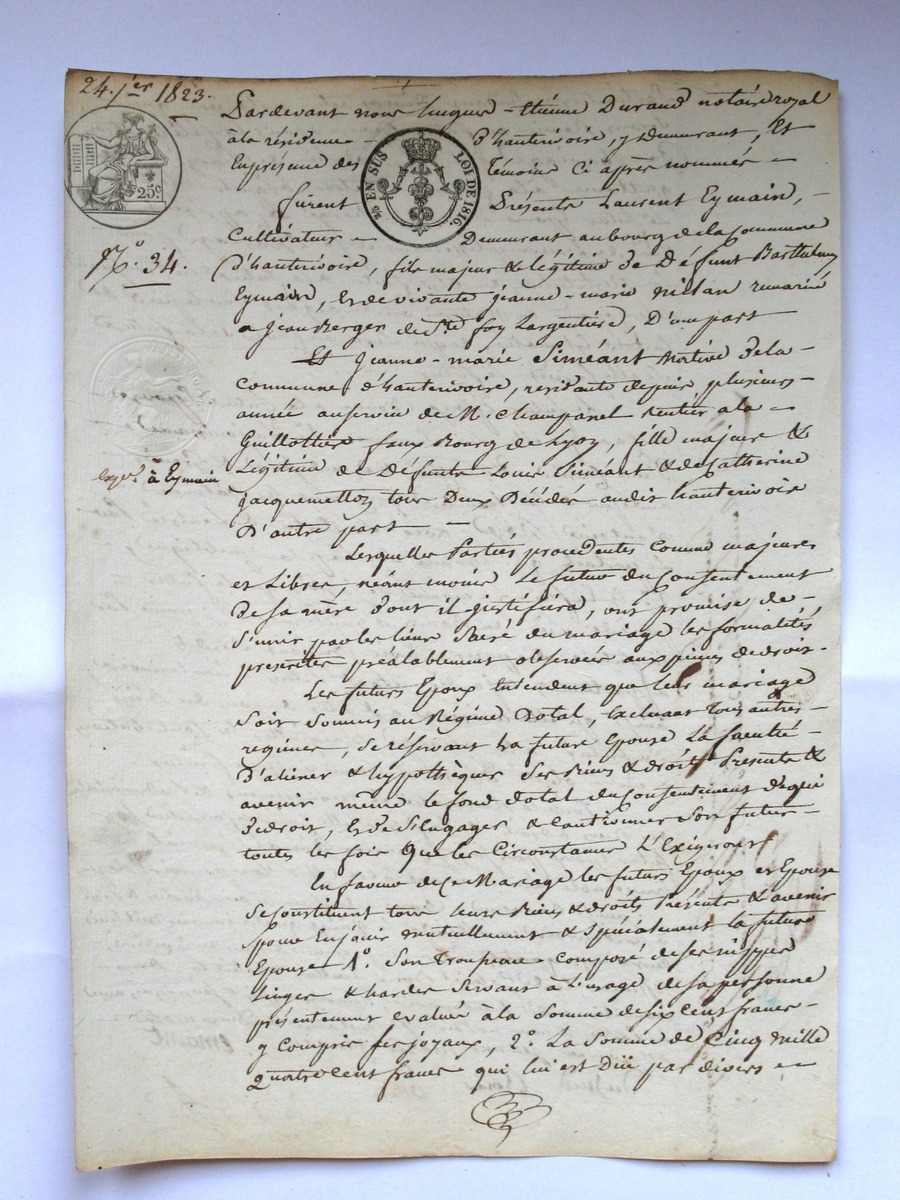 24. j.er 1823.
Pardevant nous hugues - Etienne Durand notaire royal
à la résidence - d'hauterivoire, y Demeurant, Et
En présence des Témoins Ci après nommés -
25c.
EN SUS LOI DE 1816.
furent Présents Laurent Eymain, -
Cultivateur - Demeurant au bourg de la Commune
N.o 34.
d'hauterivoire, fils majeur & légitime de Défunt Barthelemy
Eymain, et de vivante jeanne - marie remarié
a jean Berger de Ste foy Largentière, D'une part
Et jeanne - marie Siméant Native de la
Commune d'hauterivoire, residante depuis plusieurs
année au servin de M. Champanel Rentier a la -
Guillottière faux Bourg de Lyon, fille majeure &
Légitime de Défunts Louis Siméant & de Catherine
exp.on à Eymain
jacquemettoz tous Deux Décédés audit hauterivoire
D'autre part -
Lesquelles Parties procedentes Comme majeures
et Libres, néant moins Le futur du Consentement
De sa mère dont il justifiera, ont promise de -
S'unir par les liens Sacré du mariage les formalités
prescrites préalablement observées aux peines de droit.
Les futurs Epoux Entendent que leur mariage
soit Soumis au Régime Dotal, Excluant tous autres
regimes, Se réservant La future Epouse La faculté -
D'aliéner & hypothèquer Ses Biens & droits Présents &
avenir même le fond dotal du Consentement de qui
De droit, et de S'Engager & Cautionner Son futur -
toutes les fois Que les Circonstances L'Exigeront
En faveur de Ce Mariage les futurs Epoux et Epouse
Se Constituent tous leurs Biens & droits Présents & avenir
pour En jouir mutuellement & spécialement la future
Epouse 1o. Son Trousseau - Composé de ses nippes
Linges & hardes Servant à L'usage de sa personne
présentement évalué à la Somme de six cent francs -
y Compris ses joyaux, 2o. La Somme de Cinq mille
quatre cent francs qui lui est Düe par divers -